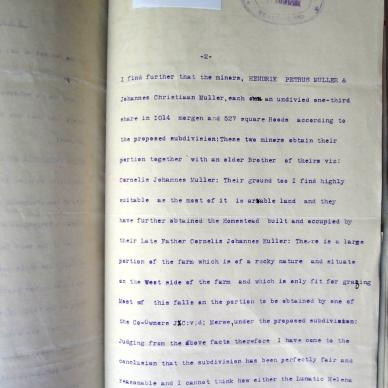 -2-
I find further that the miners, HENDRIK PETRUS MULLER &
Johannes Christiaan Muller, each own an undivied one-third
share in 1014 morgen and 527 square Roods according to
the proposed subdivision:These two miners obtain their
portion together with an older Brother of theirs viz:
Cornelis Johannes Muller: Their ground too I find highly
suitable as the most of it is arable land and they
have further obtained the Homestead built and occupied by
their Late Father Cornelis Johannes Muller: There is a large
portion of the farm which is of a rocky nature and situate
on the West side of the farm and which is only fit for grazing
Most of this falls on the portion to be obtained by one of
the Co-Owners J.C:v:d; Merwe,under the proposed subdivision:
Judging from the above facts therefore I have come to the
conclusion that the subdivision has been perfectly fair and
reasonable and I cannot think how either the Lunatic Helena